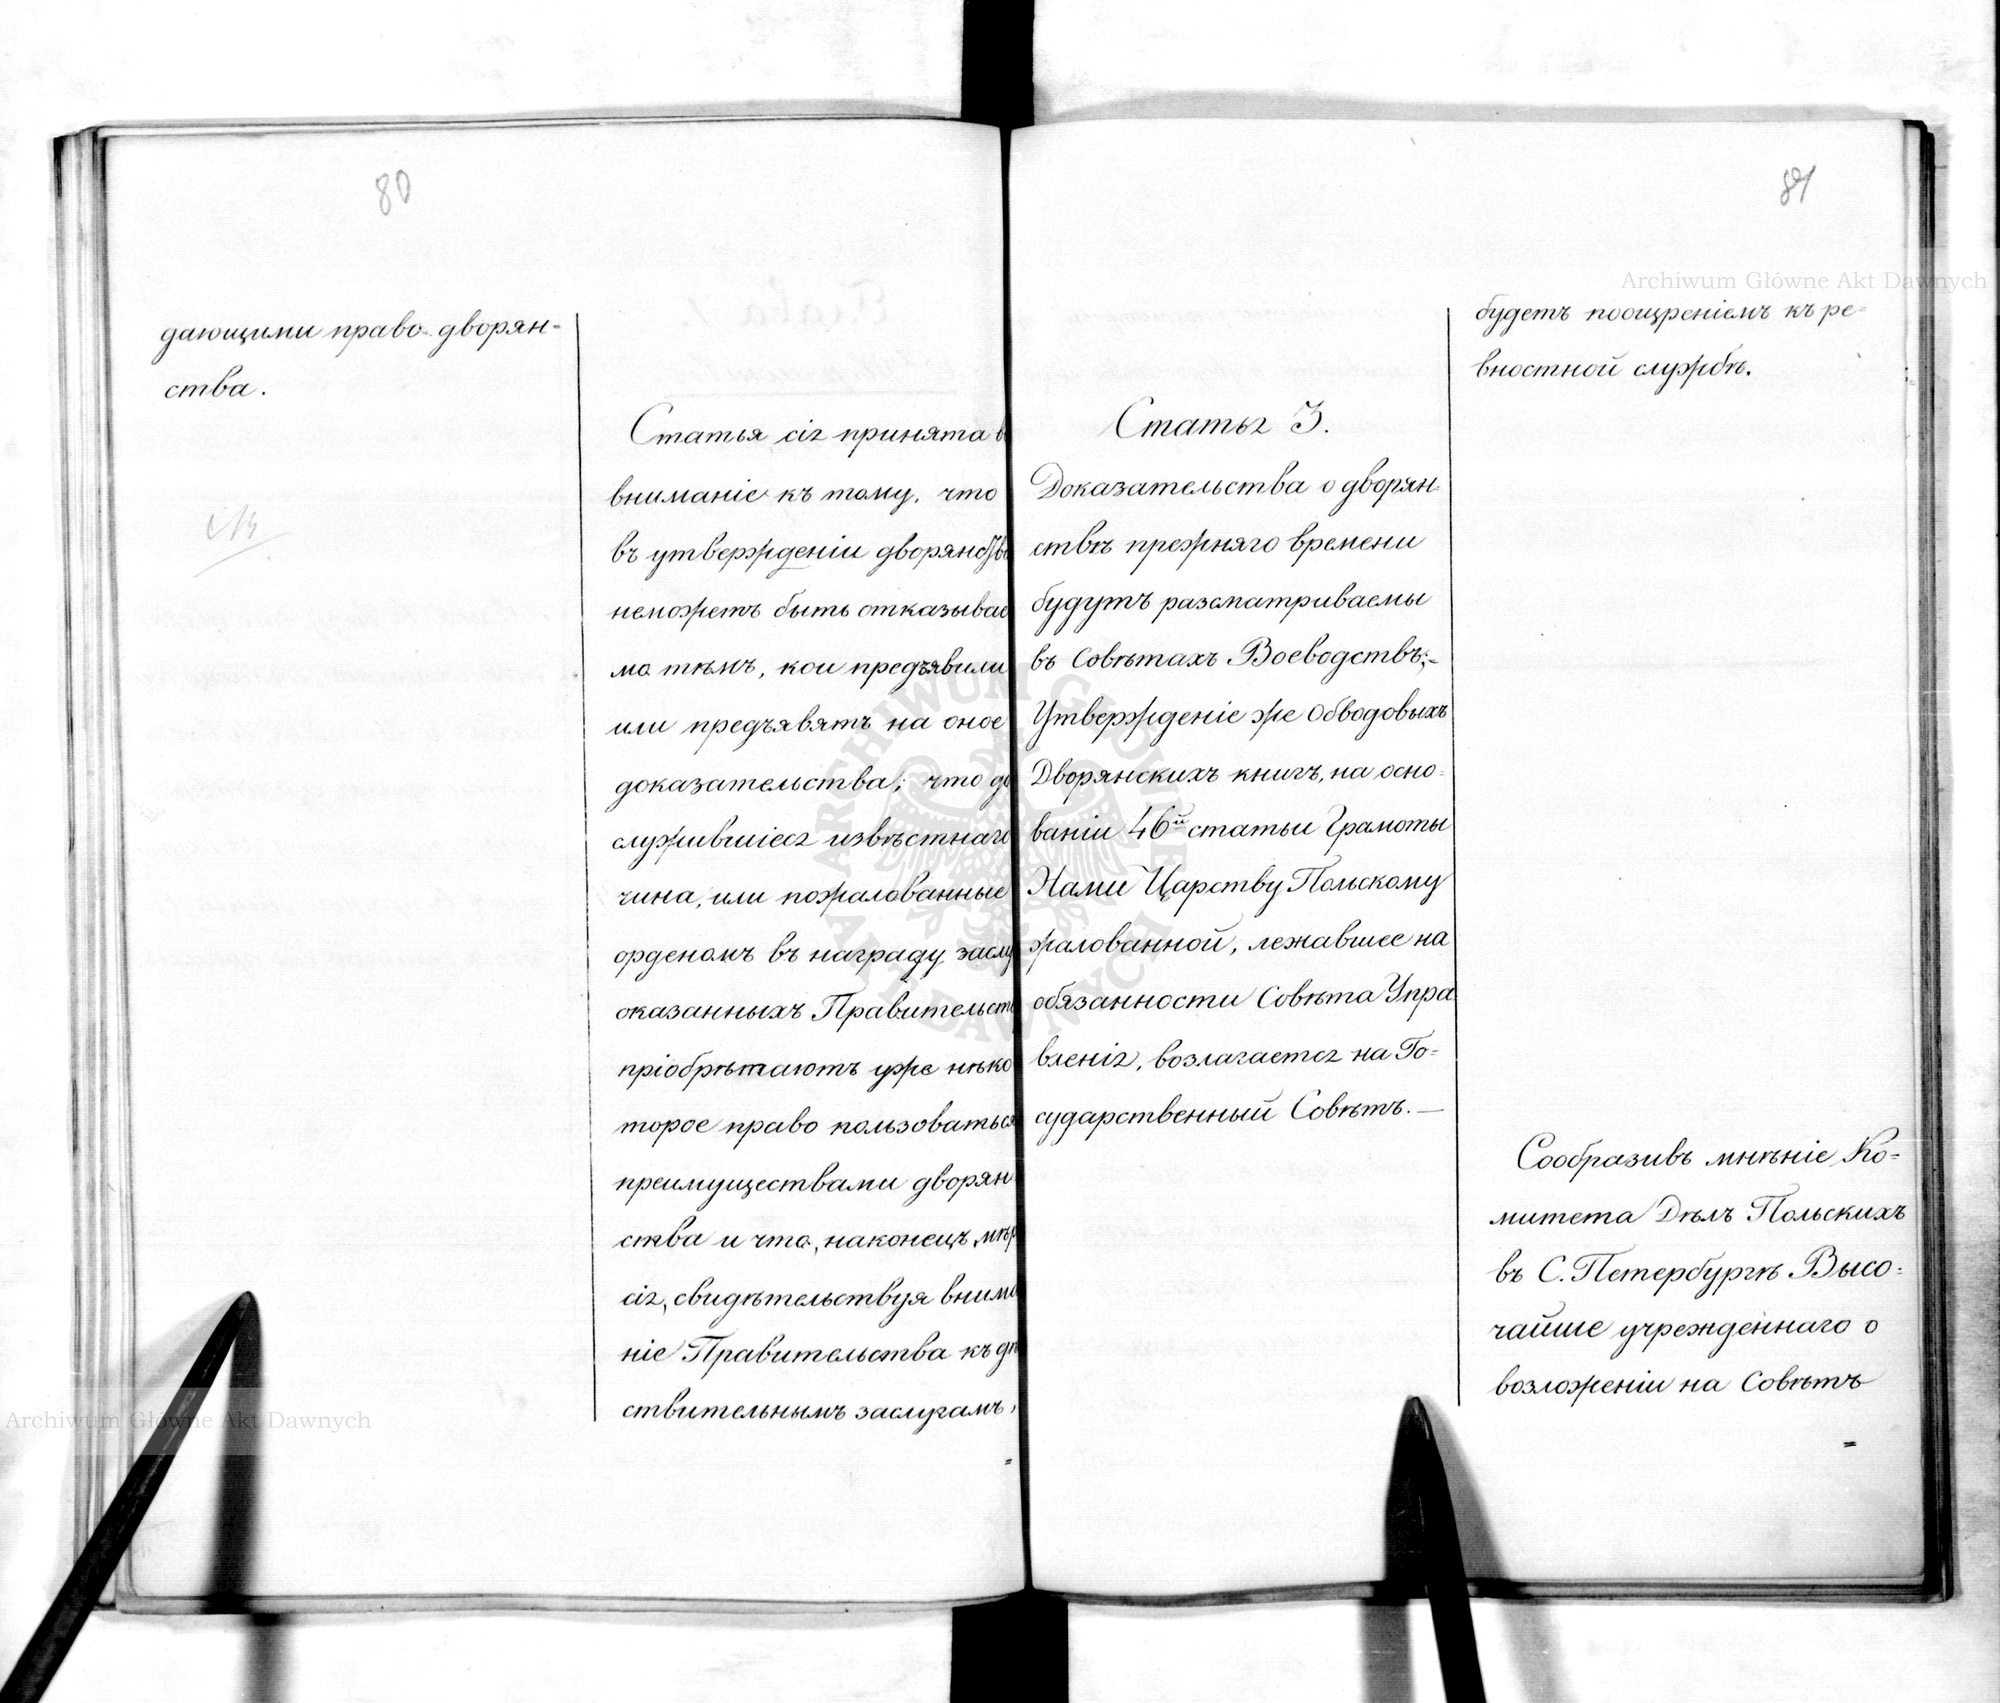 80
дающими право дворян-
ства.
Статья сія принята в
вниманіе къ тому, что
въ утвержденіи дворянства
неможетъ быть отказывае
мо тѣмъ, кои предъявили
или предъявятъ на оное
доказательства; что до
служившіеся извѣстнаго
чина, или пожалованные
орденомъ въ награду заслу
оказанныхъ Правительст
пріобрѣтаютъ уже нѣко
торое право пользоваться
преимуществами дворян
ства и что, наконецъ, мѣр
сія, свидѣтельствуя внима
ніе Правительства къ дѣ
ствительнымъ заслугамъ,
=
81
Статья 3.
Доказательства о дворян-
ствѣ прежняго времени
будутъ разсматриваемы
въ Совѣтахъ Воеводствъ;-
Утвержденіе же Обводовыхъ
Дворянскихъ книгъ, на осно-
ваніи 46й статьи Грамоты
Нами Царству Польскому
жалованной, лежавшее на
обязанности Совѣта Упра
вленія, возлагается на Го=
сударственный Совѣтъ. —
будетъ поощреніемъ къ ре=
вностной службѣ.
Сообразивъ мнѣніе Ко=
митета Дѣлъ Польскихъ
въ С. Петербургѣ Высо=
чайше учрежденнаго о
возложеніи на Совѣтъ
=
Archiwum Główne Akt Dawnych
Archiwum Główne Akt Dawnych